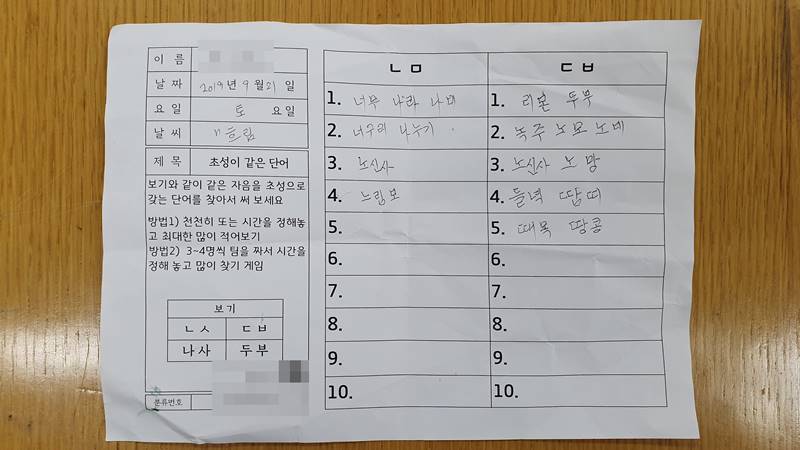 이 름
날 짜 2019 년 9 월 21 일
요 일 토 요일
날 씨 흐림
제 목 초성이 같은 단어
보기와 같이 같은 자음을 초성으로
갖는 단어를 찾아서 써 보세요
방법1) 천천히 또는 시간을 정해놓
고 최대한 많이 적어보기
방법2) 3~4명씩 팀을 짜서 시간을
정해 놓고 많이 찾기 게임
보기
ㄴ ㅅ ㄷ ㅂ
나 사 두 부
분류번호
ㄴ ㅁ ㄷ ㅂ
1. 너무 나라 나비 1. 리본 두부
2. 너구리 나누기 2. 녹주 노모 노비
3. 노신사 3. 노신사 노망
4. 느림보 4. 들녁 땁띠
5. 5. 때목 땅콩
6. 6.
7. 7.
8. 8.
9. 9.
10. 10.